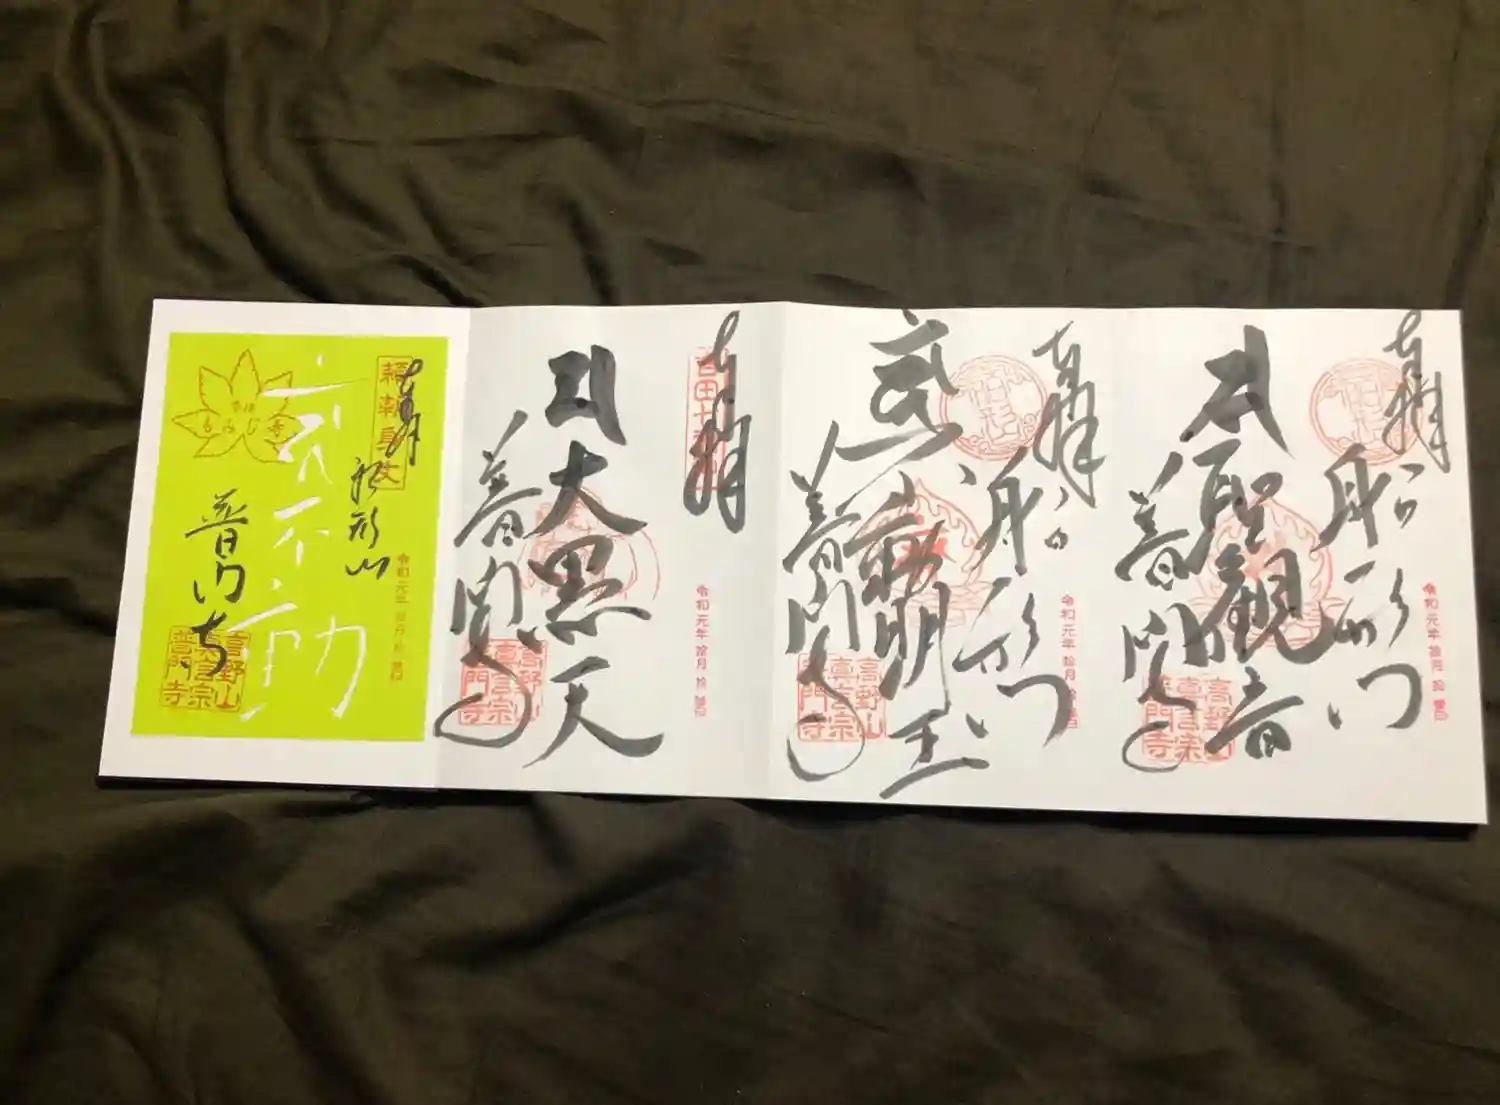 奉拝
船形山
本聖観音
普門寺
令和元年
高野山
真言宗
普門寺
奉拝
船形山
武不動明王
普門寺
令和元年拾月拾
高野山
真言宗
普門寺
奉拝
大黒天
普門寺
令和元年拾月拾
高野山
真言宗
普門寺
奉拝
船形山
武不動
もみじ寺
普門寺
令和元年
高野山
真言宗
普門寺